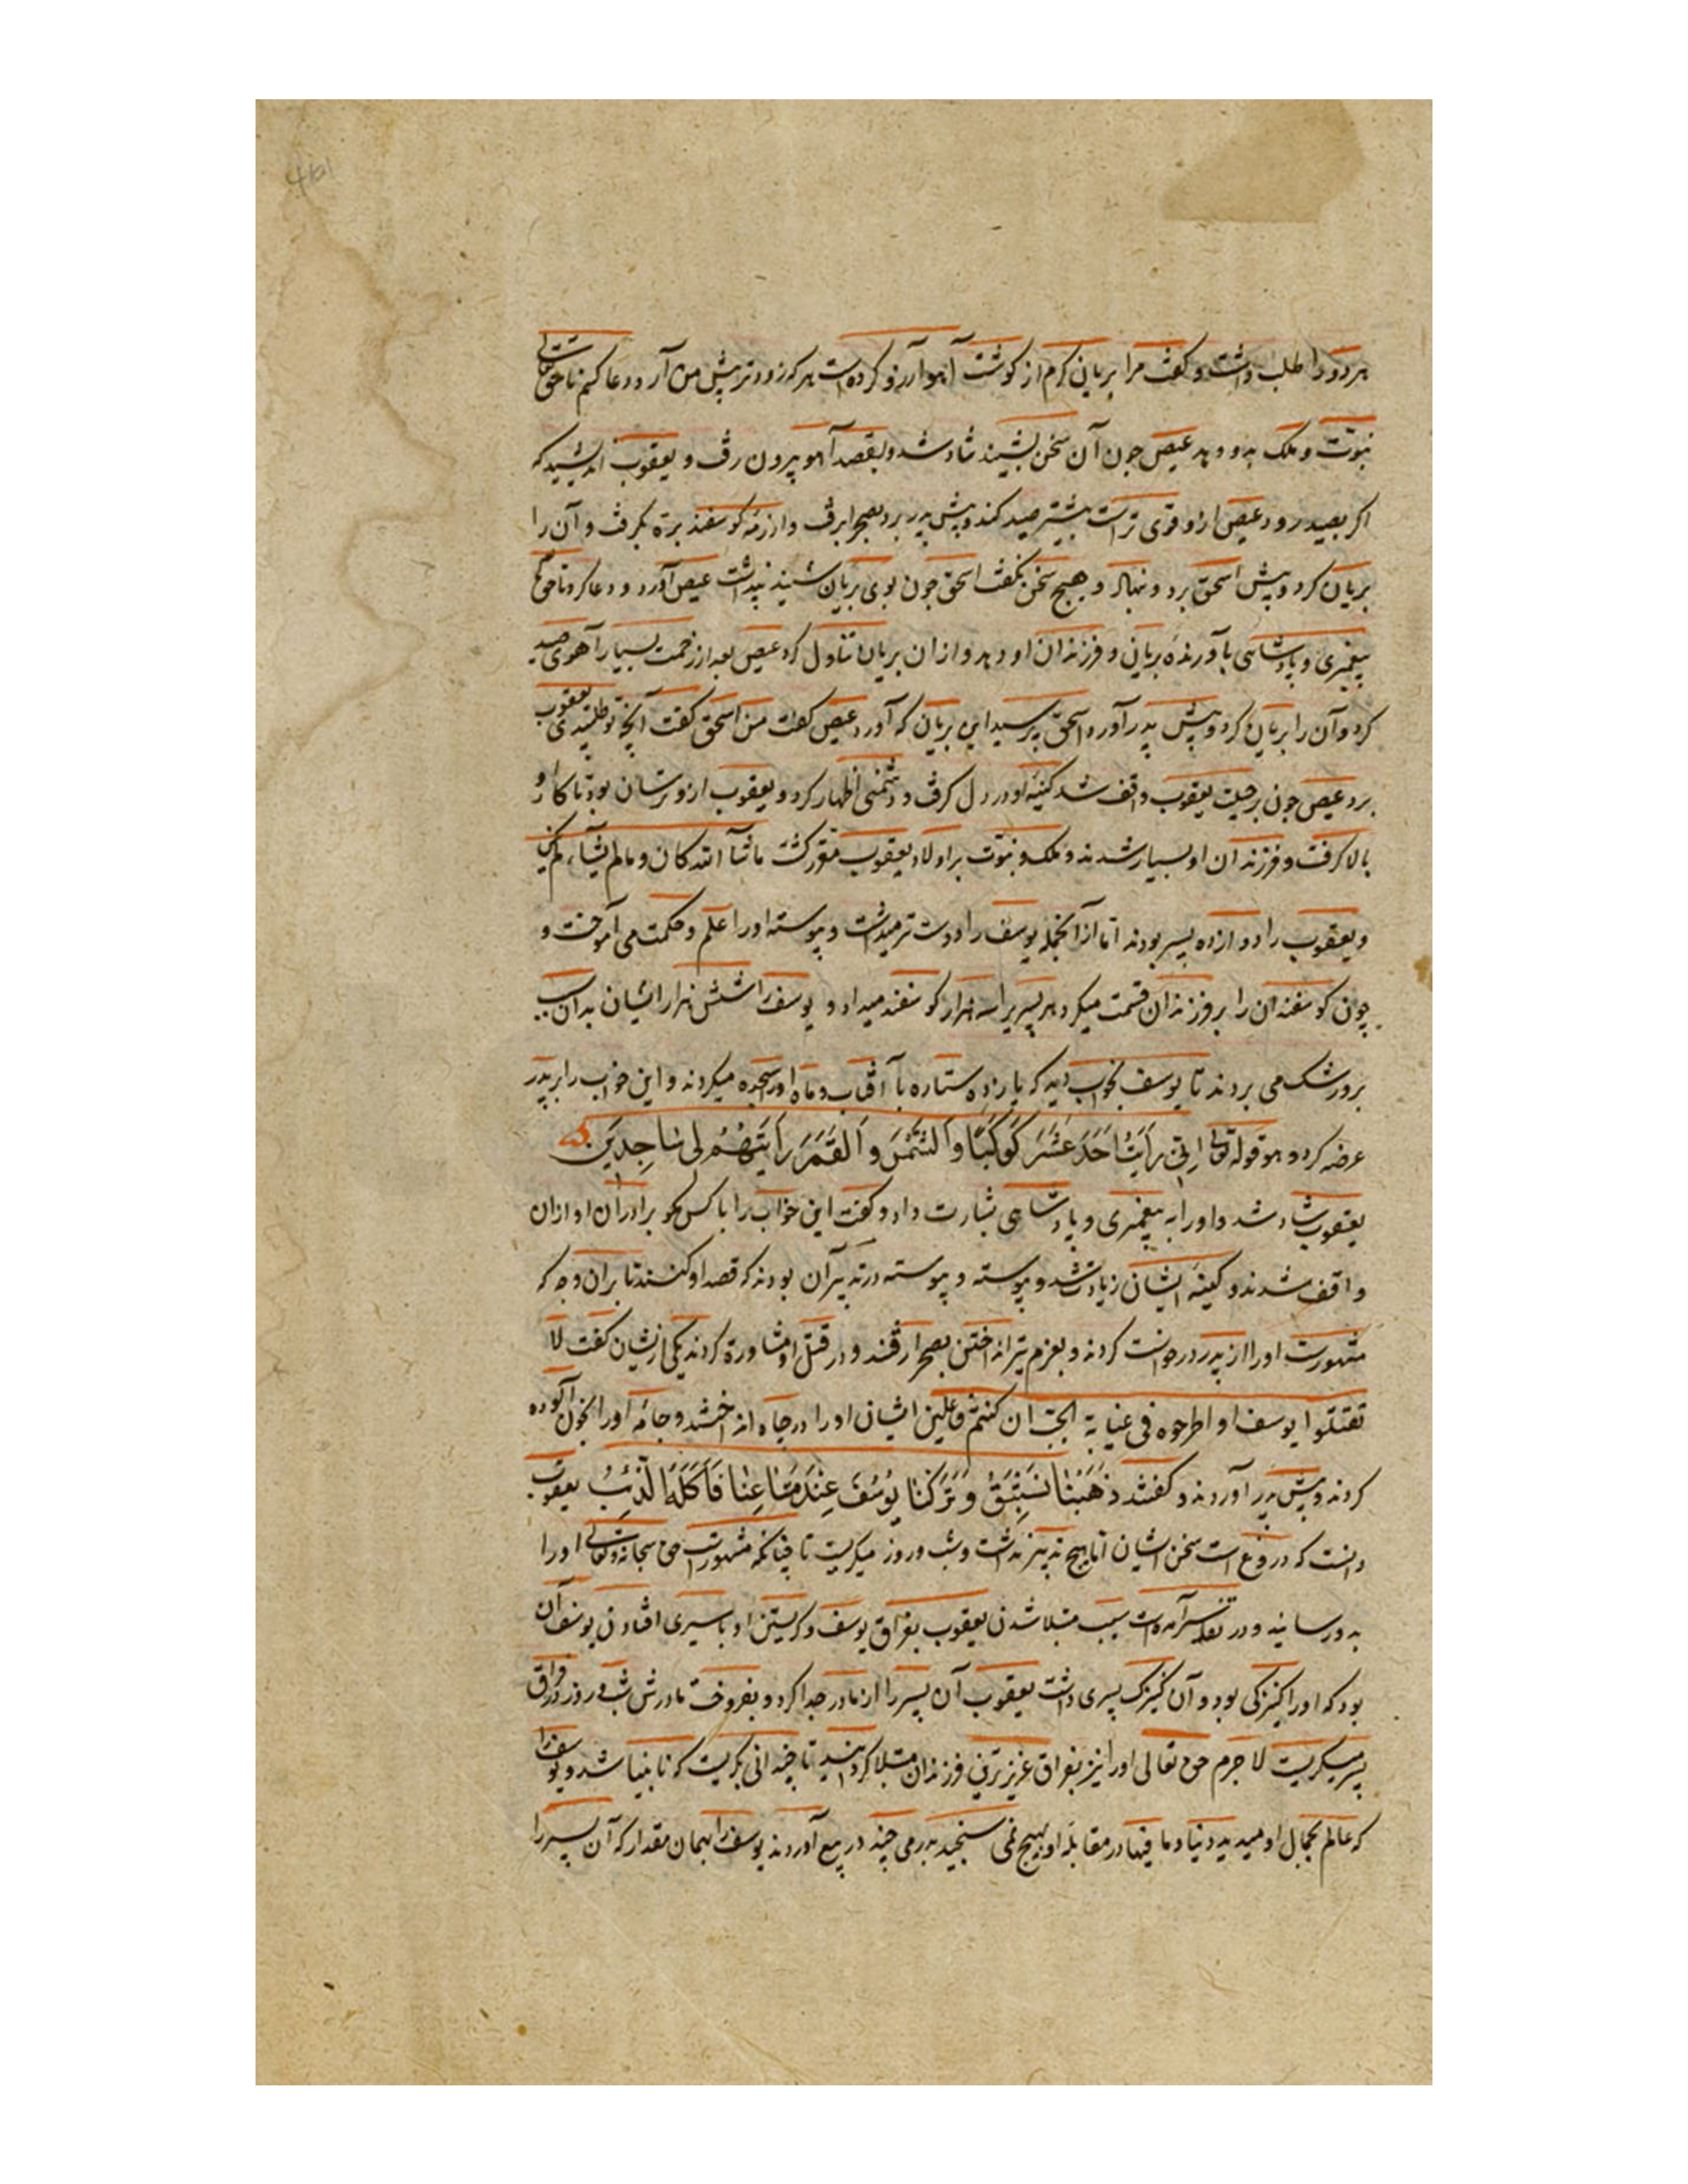 هر دو را طلب داشت و گفت مرا بریانی گرم از گوشت آهو آرزو کرده است هر که زودتر پیش من آرد دعا کنم تا حق تعالی
نبوّت و ملک بدو دهد عیص چون آن سخن بشنید شاد شد و بقصد آهو بیرون رفت و یعقوب اندیشید که
اگر بصید رود عیص ازو قوی تر است بیشتر صید کند و پیش پدر برد بصحرا برفت و از رمه گوسفند برّه بگرفت و آن را
بریان کرد و پیش اسحق برد و نهاد و هیچ سخن نگفت اسحق چون بوی بریان شنید پنداشت عیص آورد و دعا کرد تا حق تعالی
پیغمبری و پادشاهی بآورندهٔ بریانی و فرزندان او دهد و از ان بریان تناول کرد عیص بعد از زحمت بسیار آهوی صید
کرد و آن را بریان کرد و پیش پدر آورد اسحق پرسید این بریان که آورد عیص گفت من اسحق گفت آنچه تو طلبیدی یعقوب
برد عیص چون بر حیلت یعقوب واقف شد کینهٔ او در دل گرفت و دشمنی اظهار کرد و یعقوب ازو ترسان بود تا کار او
بالا گرفت و فرزندان او بسیار شدند و ملک و نبوّت بر اولاد یعقوب مقرر گشت ماشآ الله کان و مالم یشآء لم یکن
و یعقوب را دوازده پسر بودند امّا از آنجمله یوسف را دوست تر میداشت و پیوسته او را علم و حکمت می آموخت و
چون گوسفندان را بر فرزندان قسمت میکرد هر پسر را سه هزار گوسفند میداد و یوسف را شش هزار ایشان بدان سبب
برو رشک می بردند تا یوسف بخواب دید که یازده ستاره با آفتاب و ماه او را سجده میکردند و این خواب را بر پدر
عرضه کرد و هو قوله تعالی اِنّی رَاَیْتُ اَحَدَ عَشَرَ کَوْکَبًا وَ الشَّمْسَ وَ الْقَمَرَ رَاَیْتَهُمْ لی سَاجِدینَ
یعقوب شاد شد و او را به پیغمبری و پادشاهی بشارت داد و گفت این خواب را با کس مگو برادران او از ان
واقف شدند و کینهٔ ایشان زیادت شد و پیوسته و پیوسته در تدبیر آن بودند که قصد او کنند تا بر ان وجه که
مشهورست او را از پدر درخواست کردند و بعزم تیر انداختن بصحرا رفتند و در قتل او مشاورة کردند یکی ازیشان گفت لا
تقتلوا یوسف او اطرحوه فی غیابة الجبّ ان کنتم فاعلین ایشان او را در چاه انداختند و جامهٔ او را بخون آلوده
کردند و پیش پدر آوردند و گفتند ذَهَبْنَا نَسْتَبِقُ وَ تَرَکْنَا یُوسُفَ عِنْدَ مَتَاعِنَا فَاَکَلَهُ الذِّئْبُ یعقوب
دانست که دروغ است سخن ایشان امّا هیچ تدبیر نداشت و شب و روز میگریست تا چنانکه مشهورست حق سبحانه و تعالی او را
بدو رسانید و در تفسیر آمده است سبب مبتلا شدن یعقوب بفراق یوسف و گریستن او با سیری افتادن یوسف آن
بود که او را کنیزکی بود و آن کنیزک پسری داشت یعقوب آن پسر را از مادر جدا کرد و بفروخت مادرش شب و روز در فراق
پسر میگریست لا جرم حق تعالی او را نیز بفراق عزیزترین فرزندان مبتلا گردانید تا چندانی بگریست که نابینا شد و یوسف را
که عالم بجمال او میدید دنیا و ما فیها در مقابلهٔ او هیچ نمی سنجید بدرمی چند در بیع آوردند یوسف را بهمان مقدار که آن پسر را